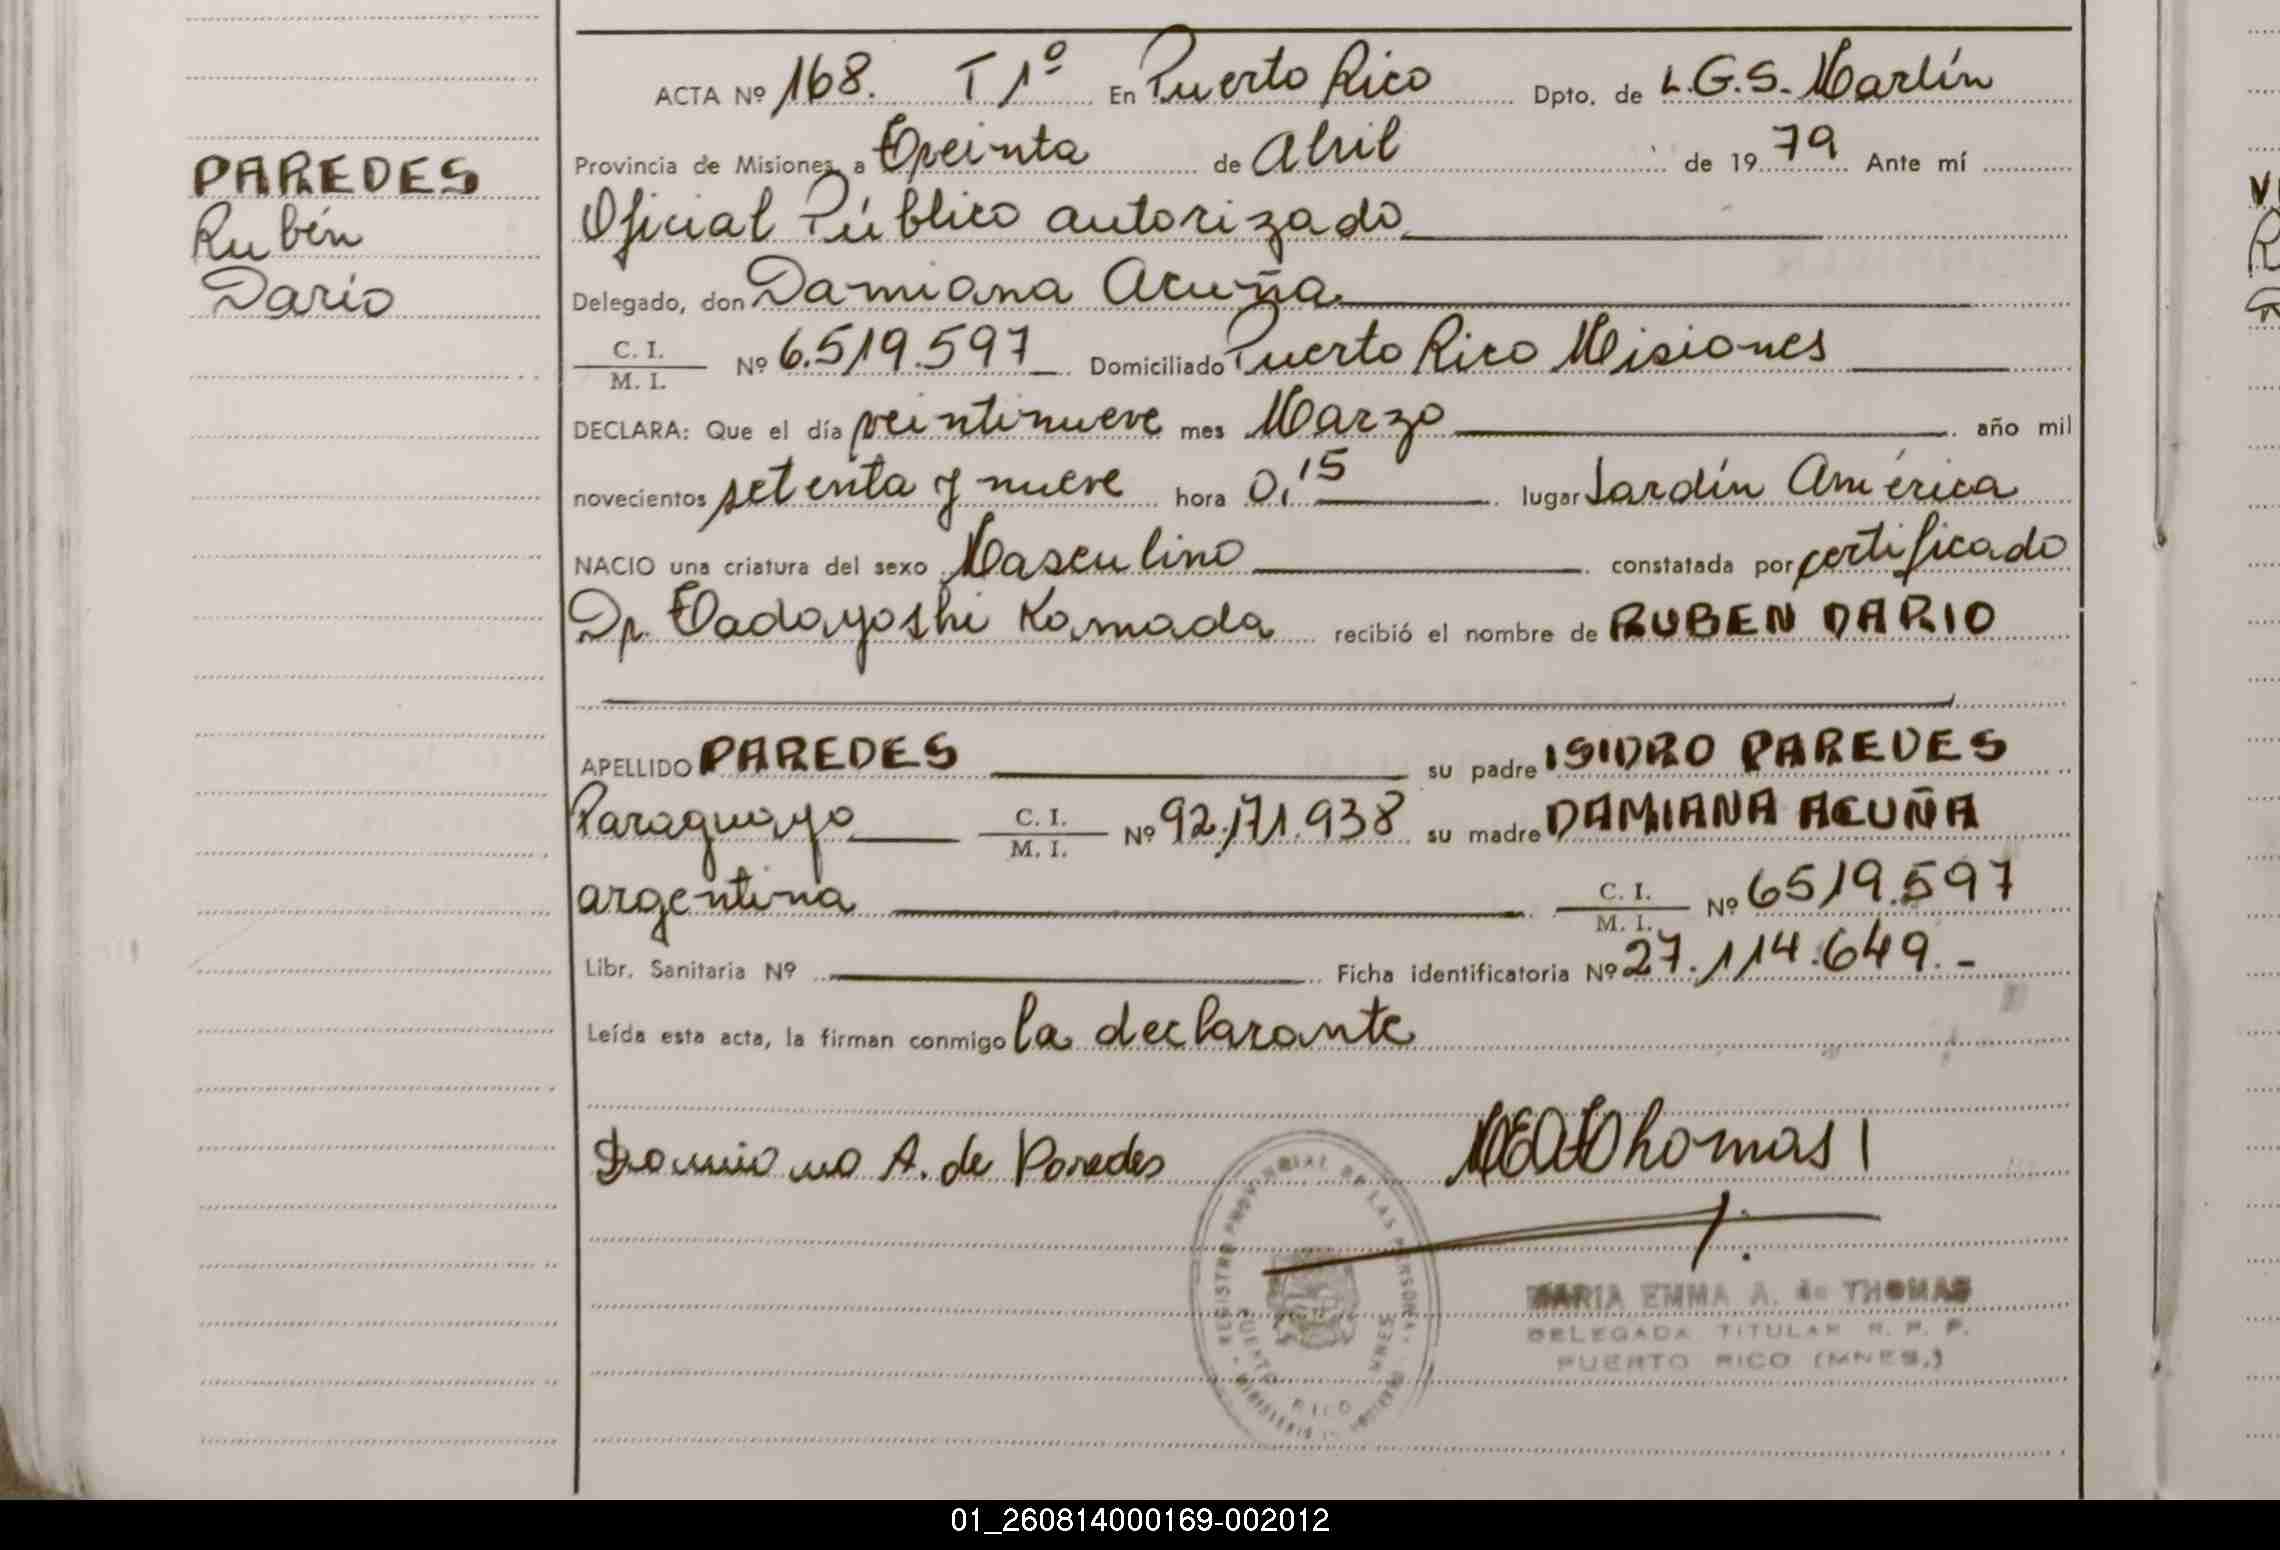 PAREDES
Rubén
Darío
ACTA Nº 168. T 1º En Puerto Rico Dpto. de L.G.S. Martín
Provincia de Misiones, a Treinta de Abril de 1979 Ante mí
Oficial Público autorizado
Delegado, don Damiana Acuña
C. I. / M. I. Nº 6.519.597 Domiciliado Puerto Rico Misiones
DECLARA: Que el día veintinueve mes Marzo año mil
novecientos setenta y nueve hora 0,15 lugar Jardín América
NACIO una criatura del sexo Masculino constatada por certificado
Dr. Tadayoshi Kamada recibió el nombre de RUBEN DARIO
APELLIDO PAREDES su padre ISIDRO PAREDES
Paraguayo C. I. / M. I. Nº 92.171.938 su madre DAMIANA ACUÑA
argentina C. I. / M. I. Nº 6519.597
Libr. Sanitaria Nº Ficha identificatoria Nº 27.114.649.-
Leída esta acta, la firman conmigo la declarante
Damiana A. de Paredes
MEAThomas
REGISTRO PROVINCIAL DE LAS PERSONAS
PUERTO RICO MNES.
MARIA EMMA A. de THOMAS
DELEGADA TITULAR R. P. P.
PUERTO RICO (MNES.)
01_260814000169-002012